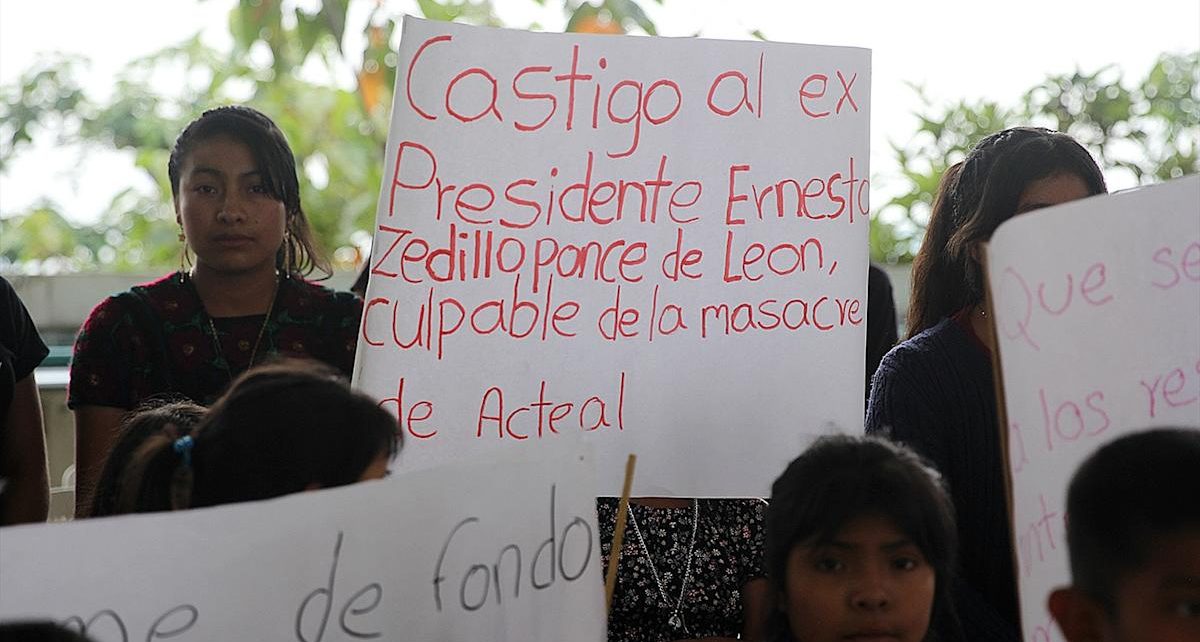 Castigo al ex
Presidente Ernesto
Zedillo ponce de Leon,
culpable de la masacre
de Acteal
de fondo
Que se
a los